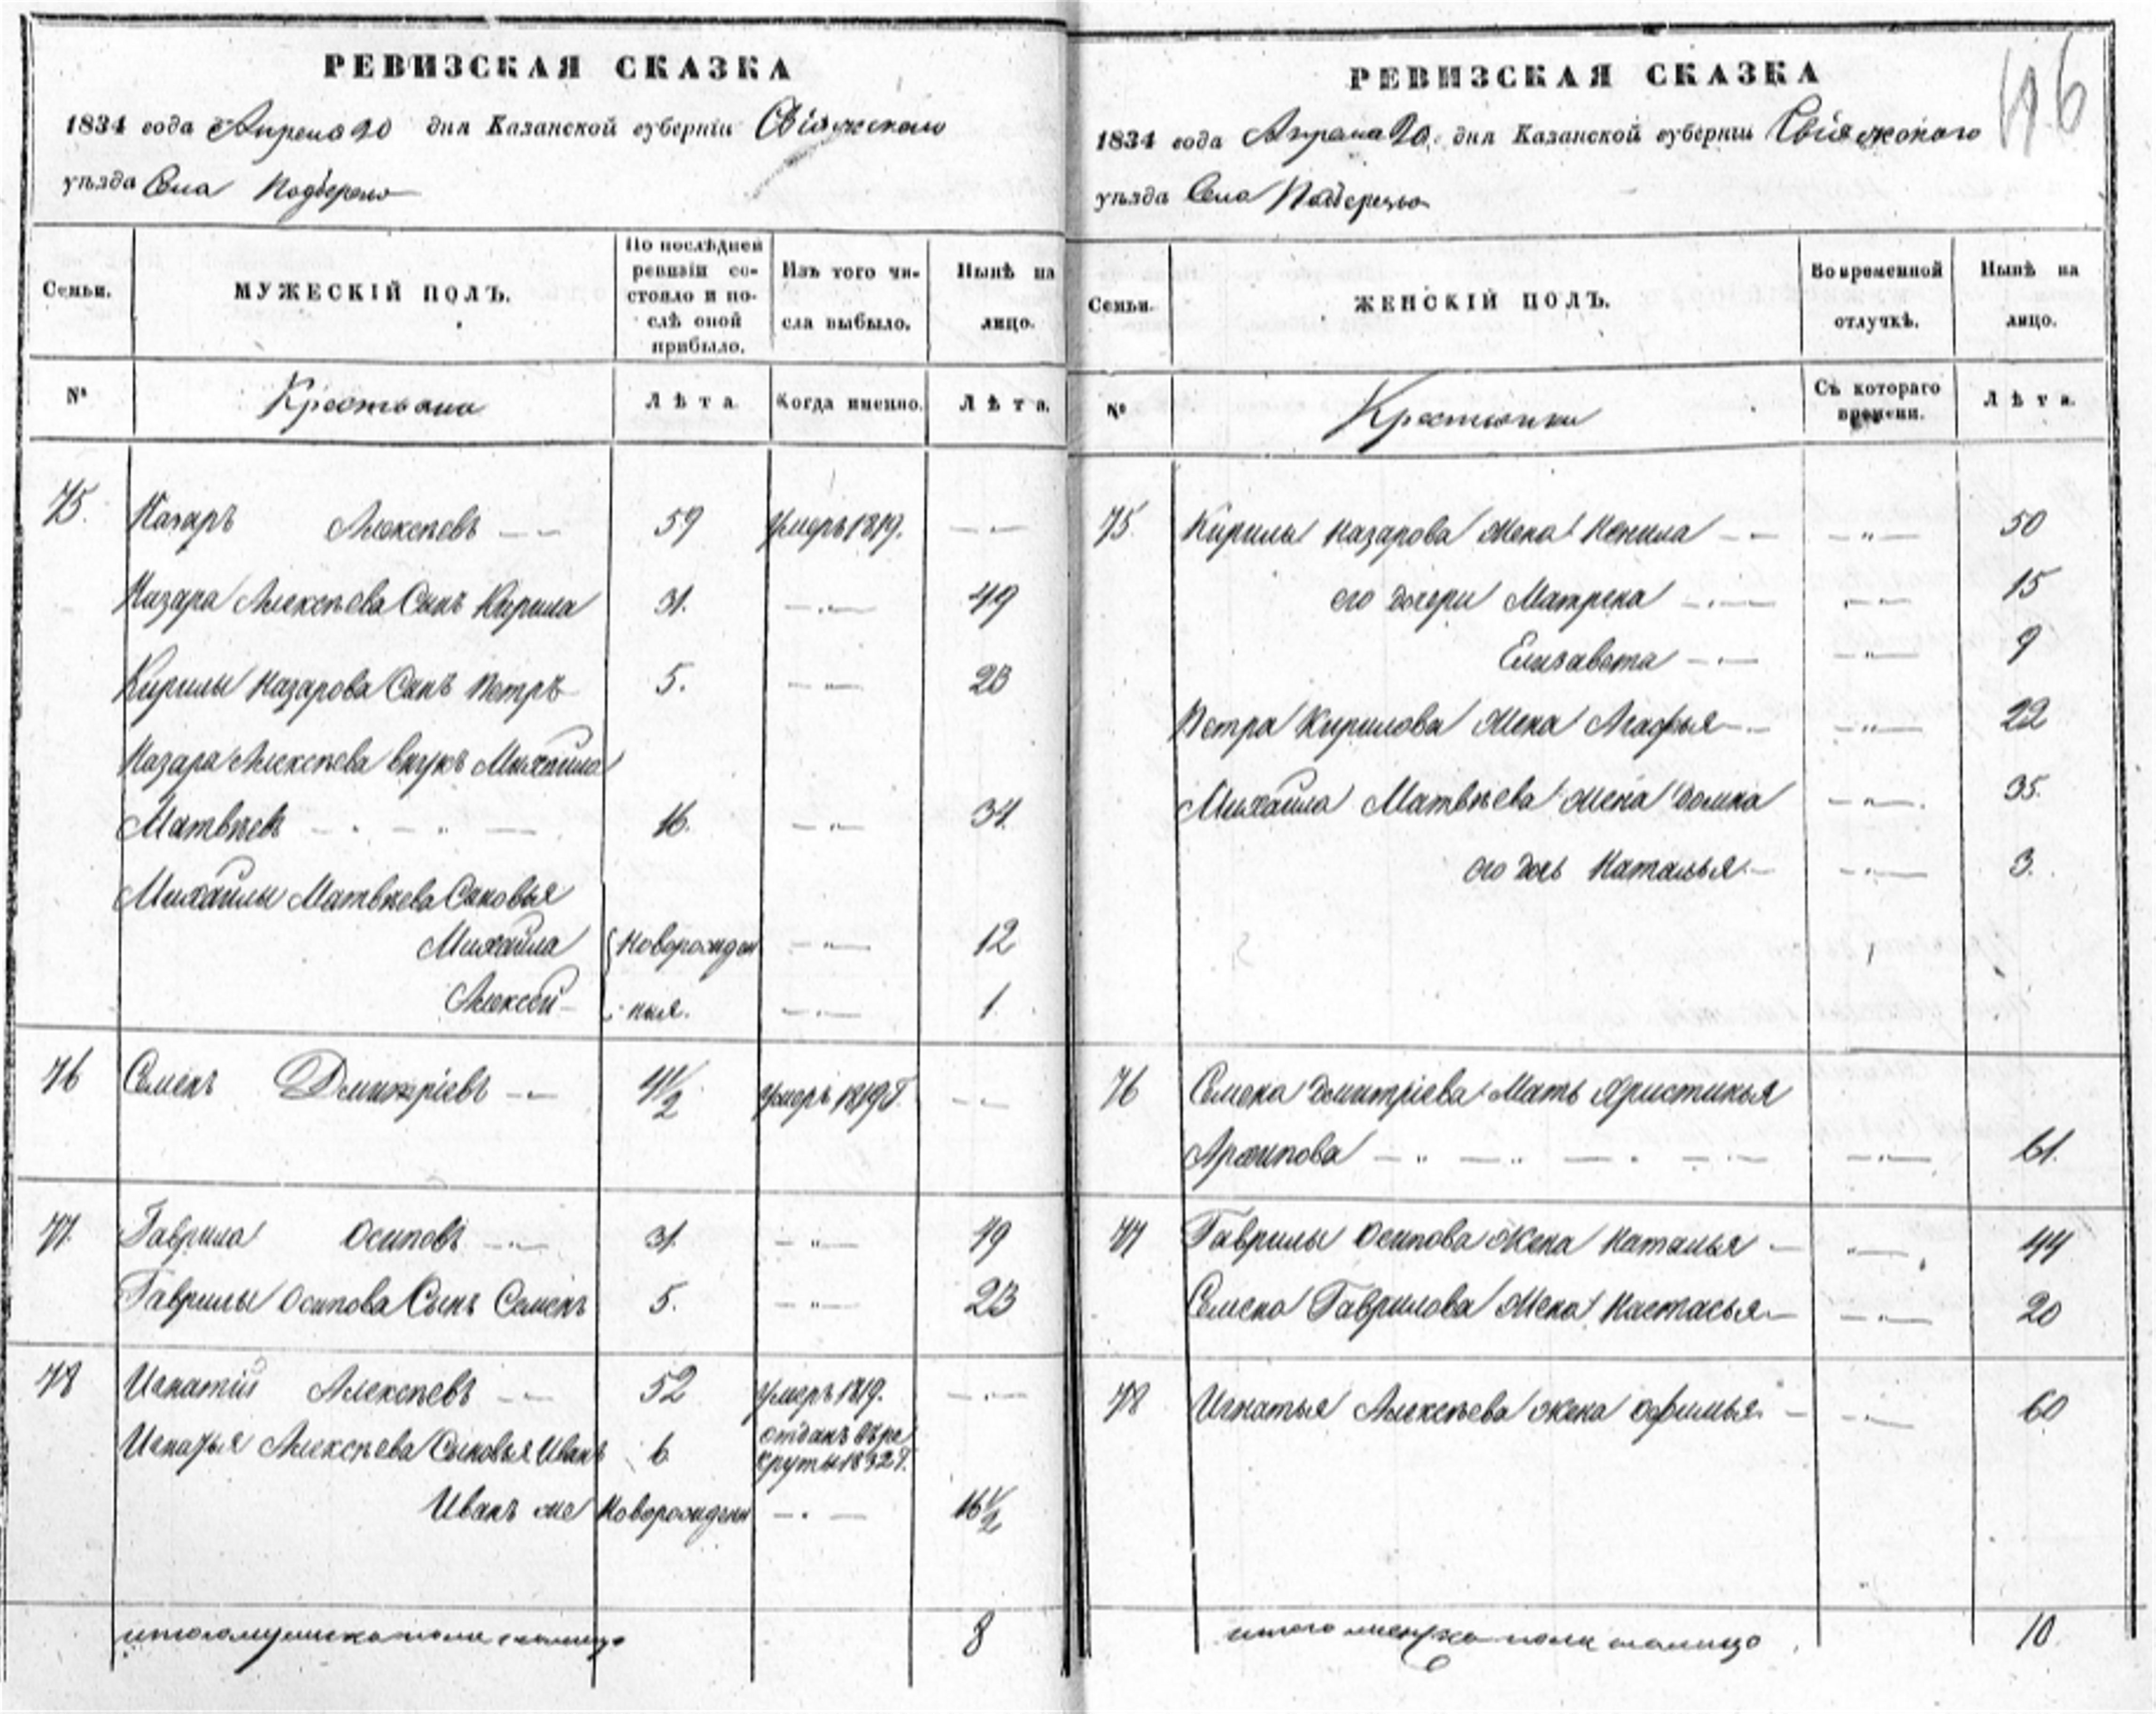 РЕВИЗСКАЯ СКАЗКА
1834 года Апреля 20 дня Казанской губерніи Свіяжскаго
уѣзда Села Подберезья
Семьи.
МУЖЕСКІЙ ПОЛЪ.
По послѣдней ревизіи состояло и послѣ оной прибыло.
Изъ того числа выбыло.
Нынѣ на лицо.
№
Крестьяне
Лѣта.
Когда именно.
Лѣта.
75. Назаръ Алексѣевъ 59 умеръ 1819.
Назара Алексѣева Сынъ Кирила 31. 49
Кирилы Назарова Сынъ Петръ 5. 23
Назара Алексѣева внукъ Михайла
Матвѣевъ 16. 34.
Михайлы Матвѣева Сыновья
Михайла новорожден 12
Алексей ныя. 1.
76 Семенъ Дмитріевъ 4 1/2 умеръ 1819 г.
77. Гаврила Осиповъ 31. 49
Гаврилы Осипова Сынъ Семенъ 5. 23
78 Игнатій Алексѣевъ 52 умеръ 1819.
Игнатья Алексѣева Сыновья Иванъ 6. отданъ въ ре
круты 1832 г.
Иванъ же новорожденн 16 1/2
итого мужеска пола налицо 8
РЕВИЗСКАЯ СКАЗКА
46
1834 года Апреля 20. дня Казанской губерніи Свіяжскаго
уѣзда Села Подберезья
Семьи.
ЖЕНСКІЙ ПОЛЪ.
Во временной отлучкѣ.
Нынѣ на лицо.
№
Крестьянки
Съ котораго времени.
Лѣта.
75. Кирилы Назарова Жена Ненила 50
его дочери Матрена 15
Елизавета 9
Петра Кирилова Жена Агафья 22
Михайла Матвѣева жена Домна 35.
его дочь Наталья 3.
76 Семена Дмитріева Мать Христинья
Архипова 61.
77 Гаврилы Осипова Жена Наталья 44
Семена Гаврилова Жена Настасья 20
78 Игнатья Алексѣева жена Офимья 60
итого женска пола налицо 10.